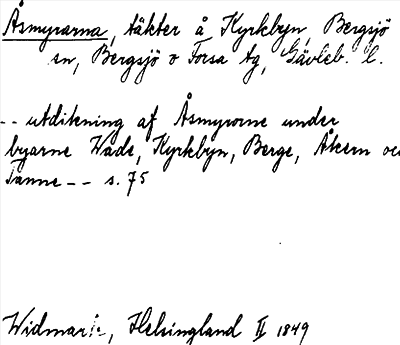 Åsmyrarna, täkter å Kyrkbyn, Bergsjö
sn, Bergsjö o Forsa tg, Gävleb. l.
-- utdikning af Åsmyrorne under
byarne Wade, Kyrkbyn, Berge, Åkern och
Tanne -- s. 75
Widmark, Helsingland II 1849